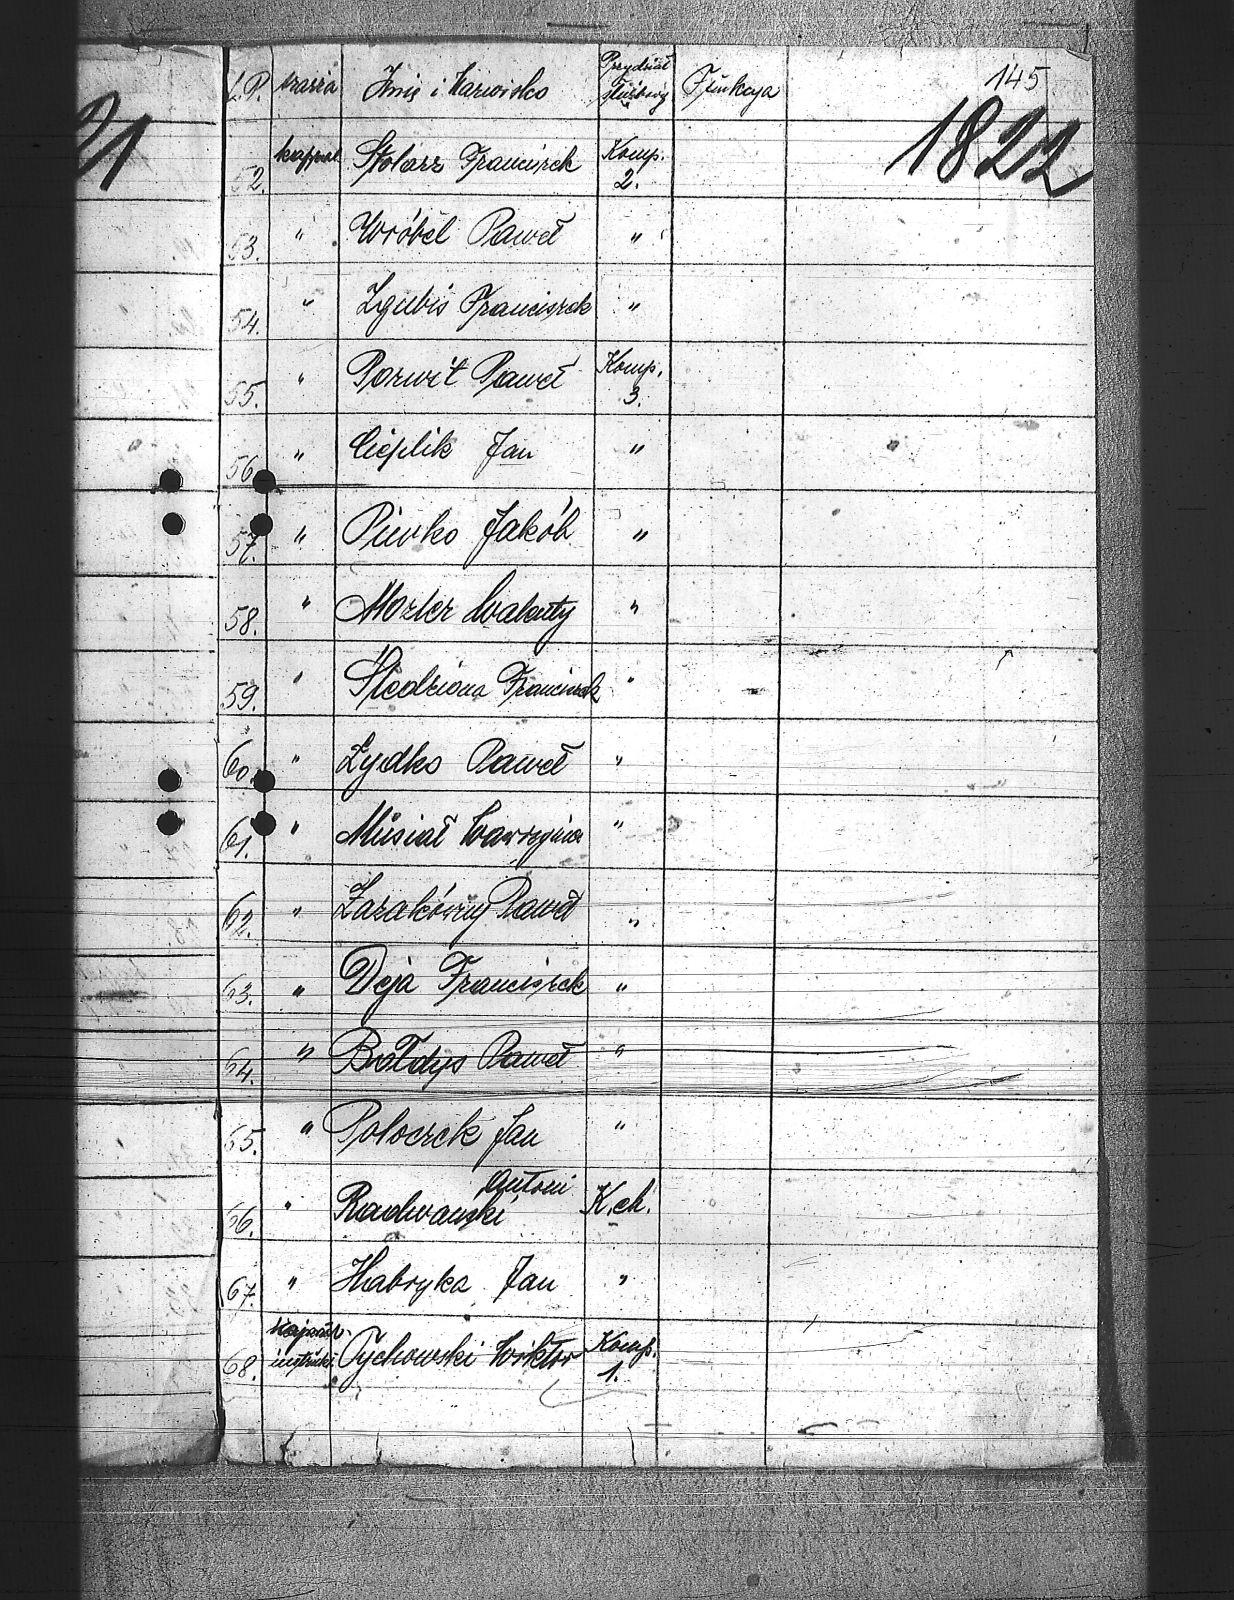 L.P. szarża Imię i Nazwisko Przydział służbowy Funkcja 145
21 1822
52. kapral Stolarz Franciszek Komp. 2.
53. " Wróbel Paweł "
54. " Zgubiś Franciszek "
55. " Porwit Paweł Komp. 3.
56. " Cieplik Jan "
57. " Piwko Jakób "
58. " Mozler Walenty "
59. " Śledziona Franciszek "
60. " Żydko Paweł "
61. " Musiał Wawrzyniec "
62. " Paweł "
63. " Deja Franciszek "
64. " Bałdys Paweł "
65. " Poloczek Jan "
66. " Radwański Antoni K.ch.
67. " Habryka Jan "
68. instrukt. Tychowski Wiktor Komp. 1.